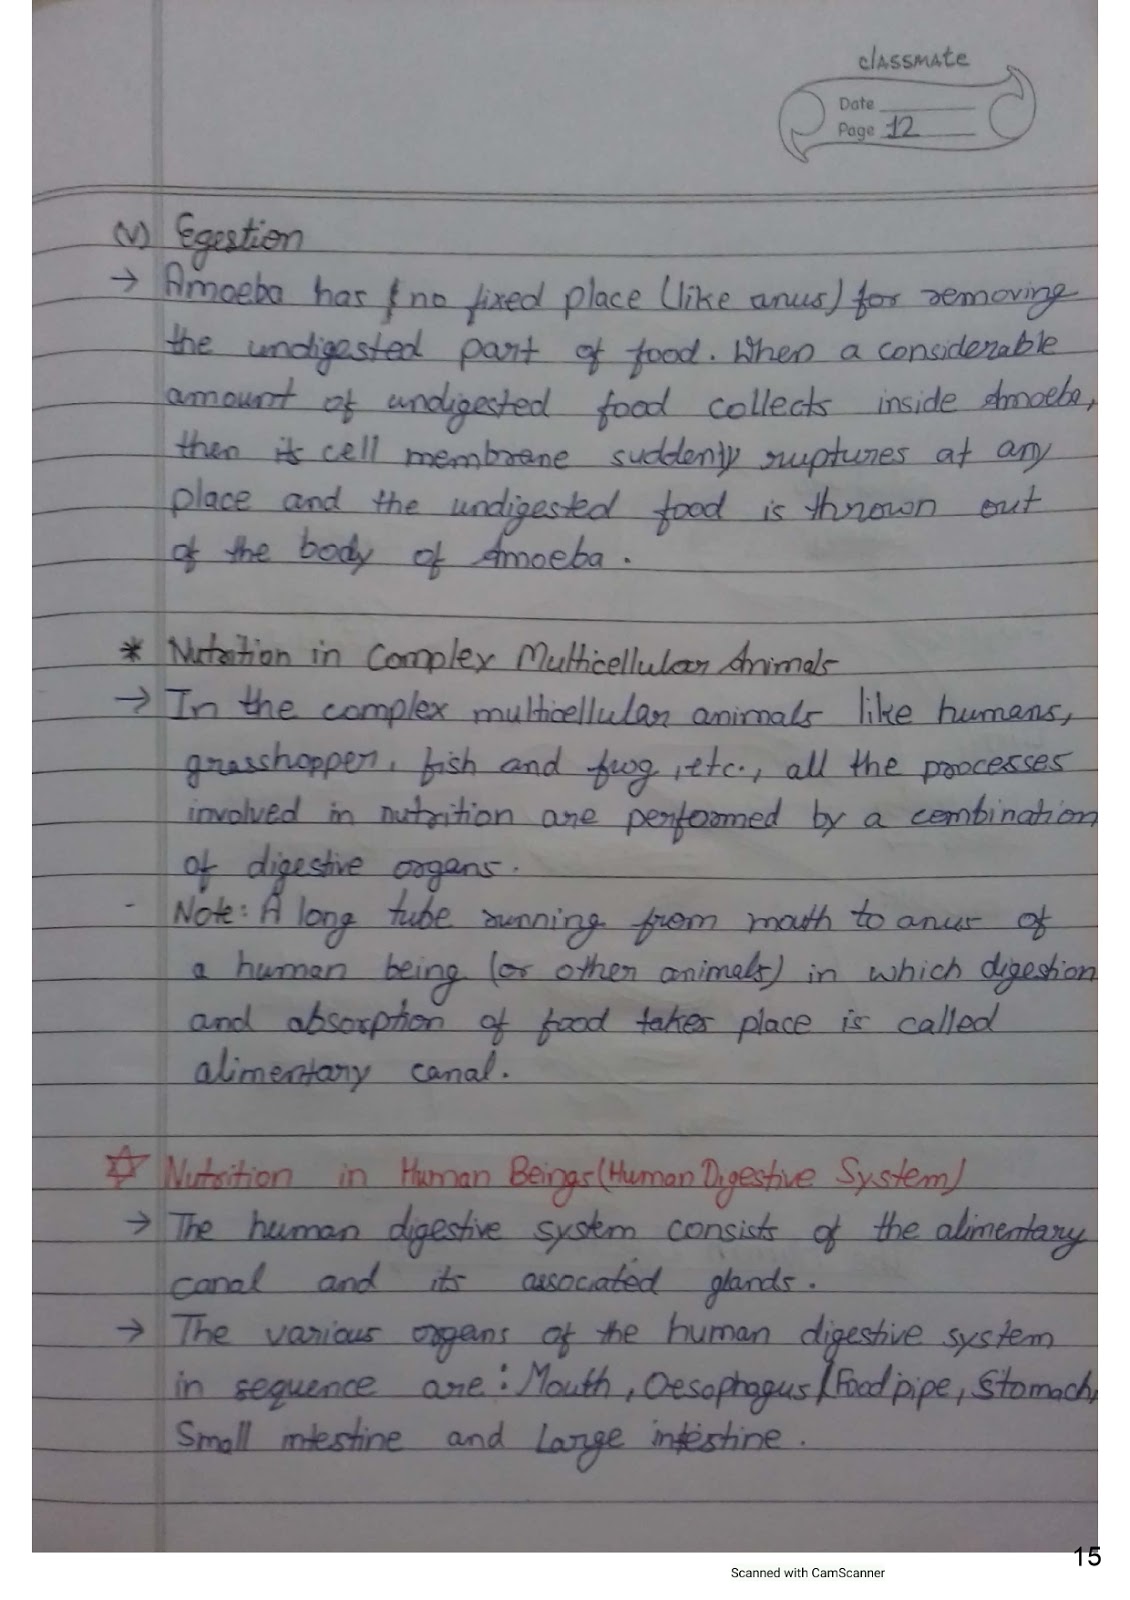 classmate
Date
Page 12
(v) Egestion
→ Amoeba has no fixed place (like anus) for removing
the undigested part of food. When a considerable
amount of undigested food collects inside Amoeba,
then its cell membrane suddenly ruptures at any
place and the undigested food is thrown out
of the body of Amoeba.
* Nutrition in Complex Multicellular Animals
→ In the complex multicellular animals like humans,
grasshopper, fish and frog, etc., all the processes
involved in nutrition are performed by a combination
of digestive organs.
- Note: A long tube running from mouth to anus of
a human being (or other animals) in which digestion
and absorption of food takes place is called
alimentary canal.
☆ Nutrition in Human Beings (Human Digestive System)
→ The human digestive system consists of the alimentary
canal and its associated glands.
→ The various organs of the human digestive system
in sequence are: Mouth, Oesophagus/Foodpipe, Stomach,
Small intestine and Large intestine.
15
Scanned with CamScanner